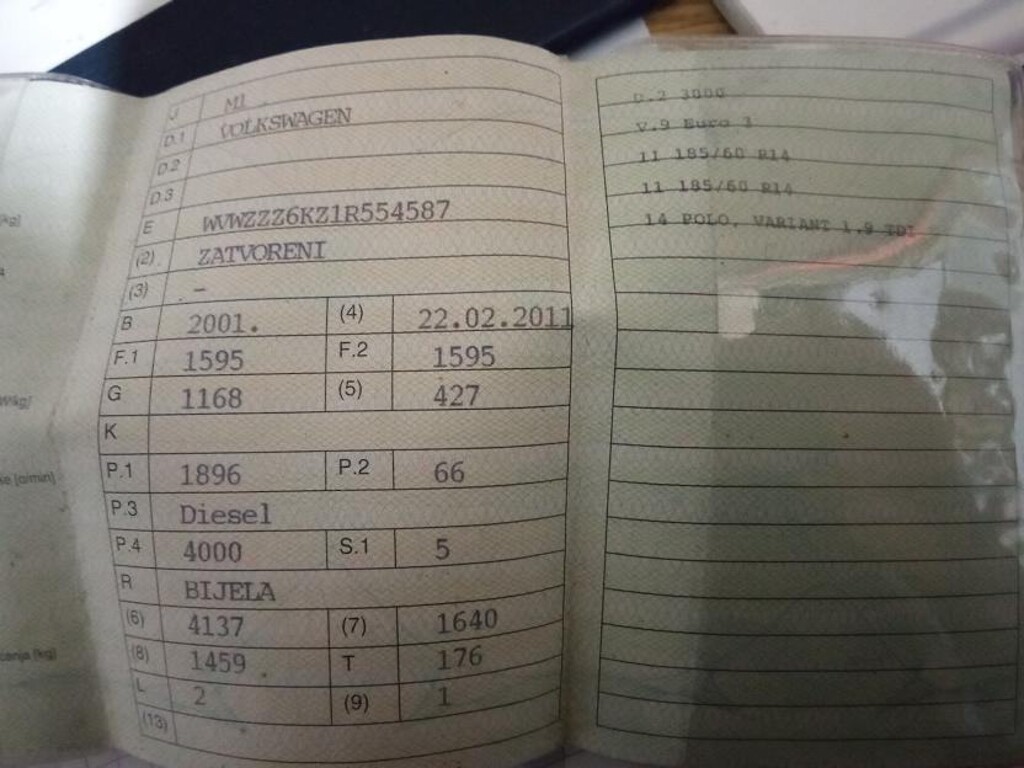 J M1
D.1 VOLKSWAGEN
D.2
D.3
E WVWZZZ6KZ1R554587
(2) ZATVORENI
(3) -
B 2001. (4) 22.02.2011
F.1 1595 F.2 1595
G 1168 (5) 427
K
P.1 1896 P.2 66
P.3 Diesel
P.4 4000 S.1 5
R BIJELA
(6) 4137 (7) 1640
(8) 1459 T 176
L 2 (9) 1
(13)
3000
V.9 Euro 3
11 185/60 R14
11 185/60 R14
14 POLO, VARIANT 1.9 TDI